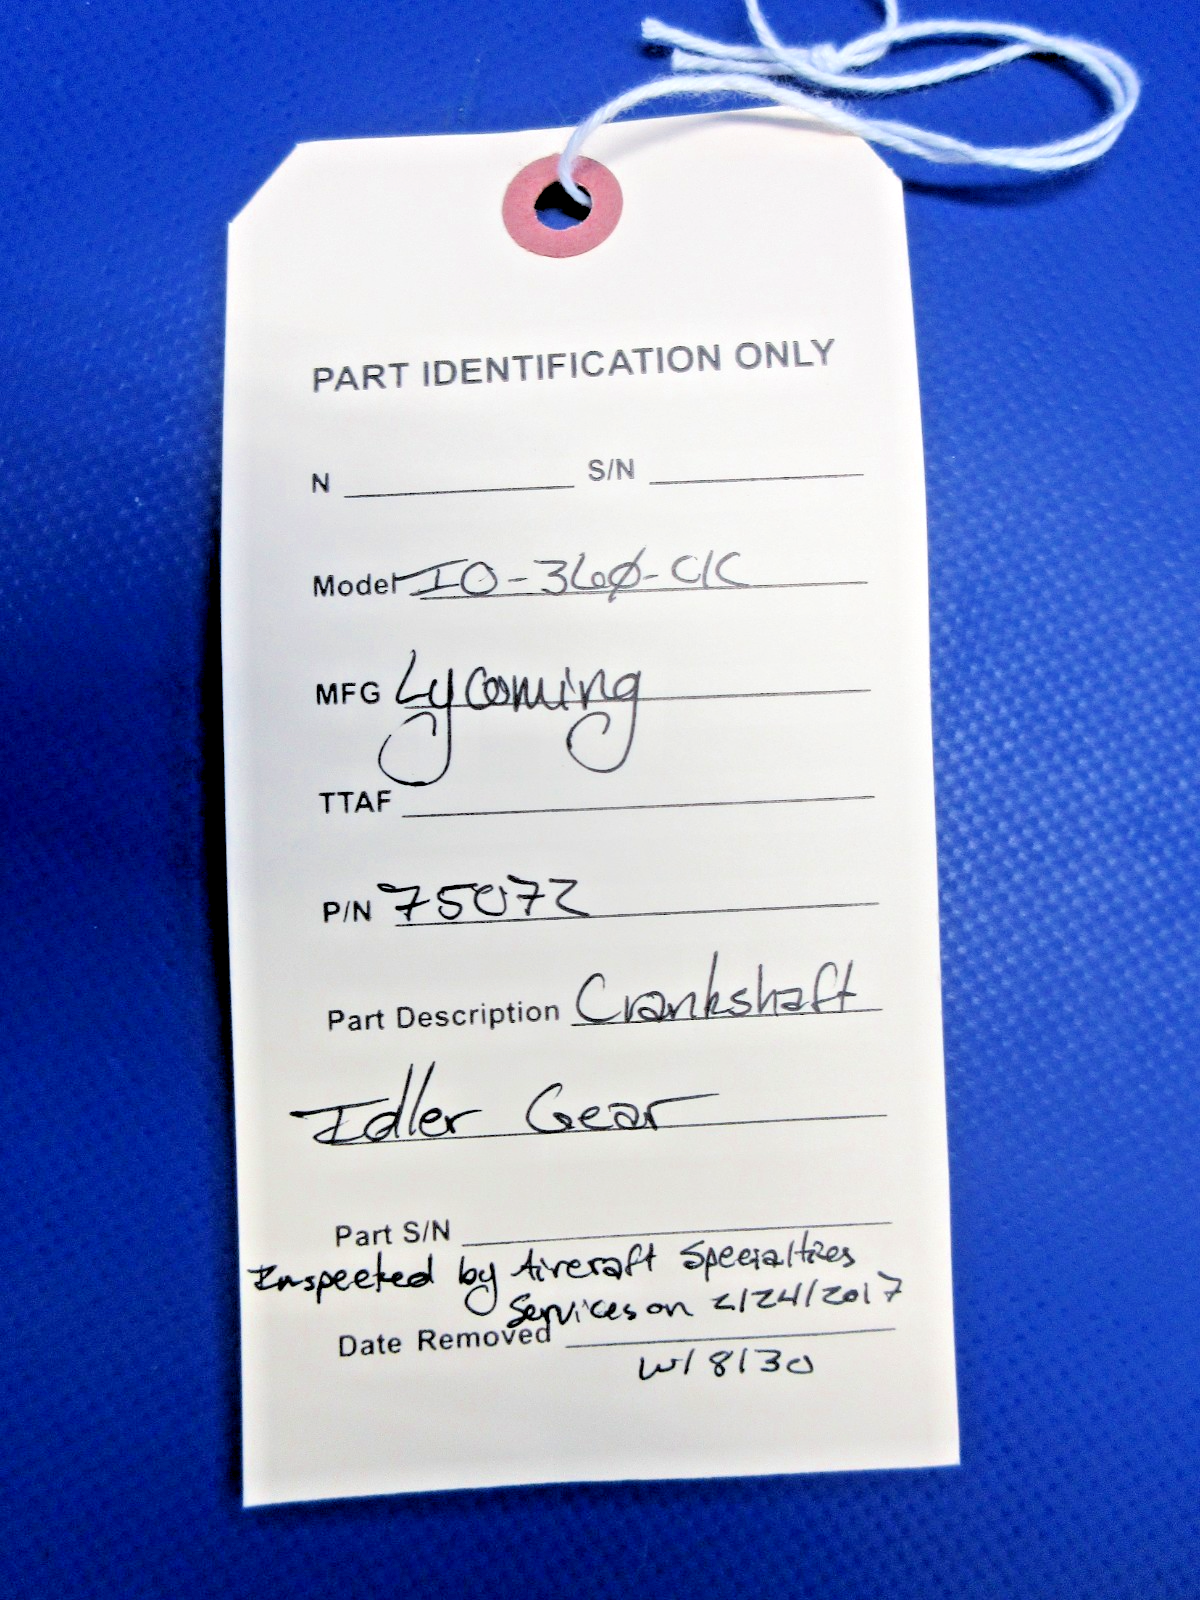 PART IDENTIFICATION ONLY
N S/N
Model IO-360-C1C
MFG Lycoming
TTAF
P/N 75072
Part Description Crankshaft
Idler Gear
Part S/N
Inspected by Aircraft Specialties
Services on 2/24/2017
Date Removed
W/ 8130